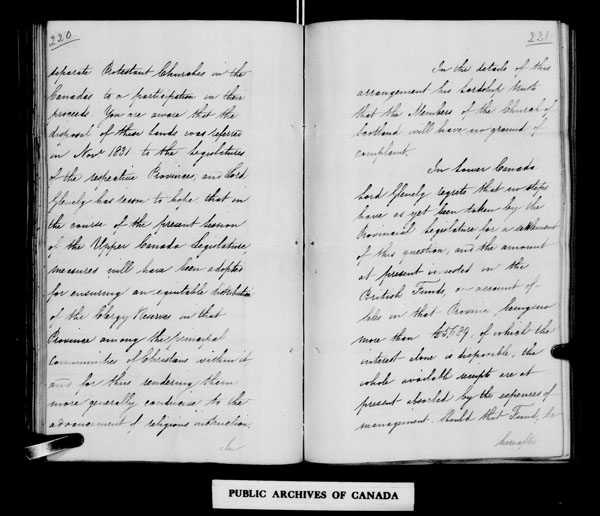 220
separate Protestant Churches in the
Canadas to a participation in their
proceeds. You are aware that the
disposal of these Lands was referred
in Novr 1831 to the Legislatures
of the respective Provinces, and Lord
Glenelg has reason to hope that in
the course of the present Session
of the Upper Canada Legislature,
measures will have been adopted
for ensuring an equitable distribution
of the Clergy Reserves in that
Province among the principal
Communities of Christians within it
and for thus rendering them
more generally conducive to the
advancement of religious instruction.
In
221
In the details of this
arrangement his Lordship trusts
that the Members of the Church of
Scotland will have no ground of
complaint.
In Lower Canada
Lord Glenelg regrets that no steps
have as yet been taken by the
Provincial Legislature for a settlement
of this question, and the amount
at present invested in the
British Funds, on account of
sales in that Province being no
more than of which the
interest alone is disposable, the
whole available receipts are at
present absorbed by the expences of
management. Should that Fund, be
hereafter
PUBLIC ARCHIVES OF CANADA